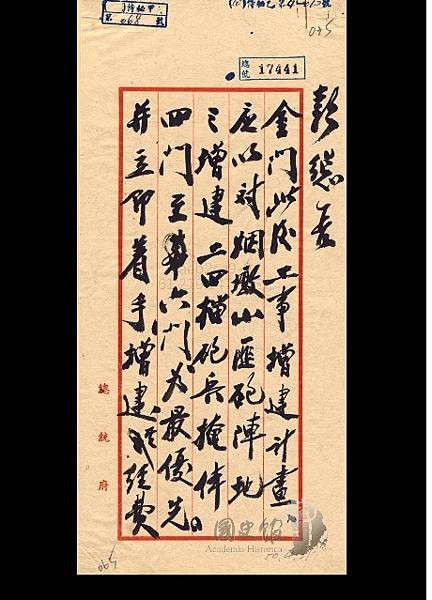 第 068 號
總號 17441
彭總長
金門此後工事增建計畫、
應以對烟墩山匪砲陣地
之增建二四榴砲兵掩体
四門至第六門为最優先。
并立即着手增建 經費
總統府
065
國史館
Academia Historica